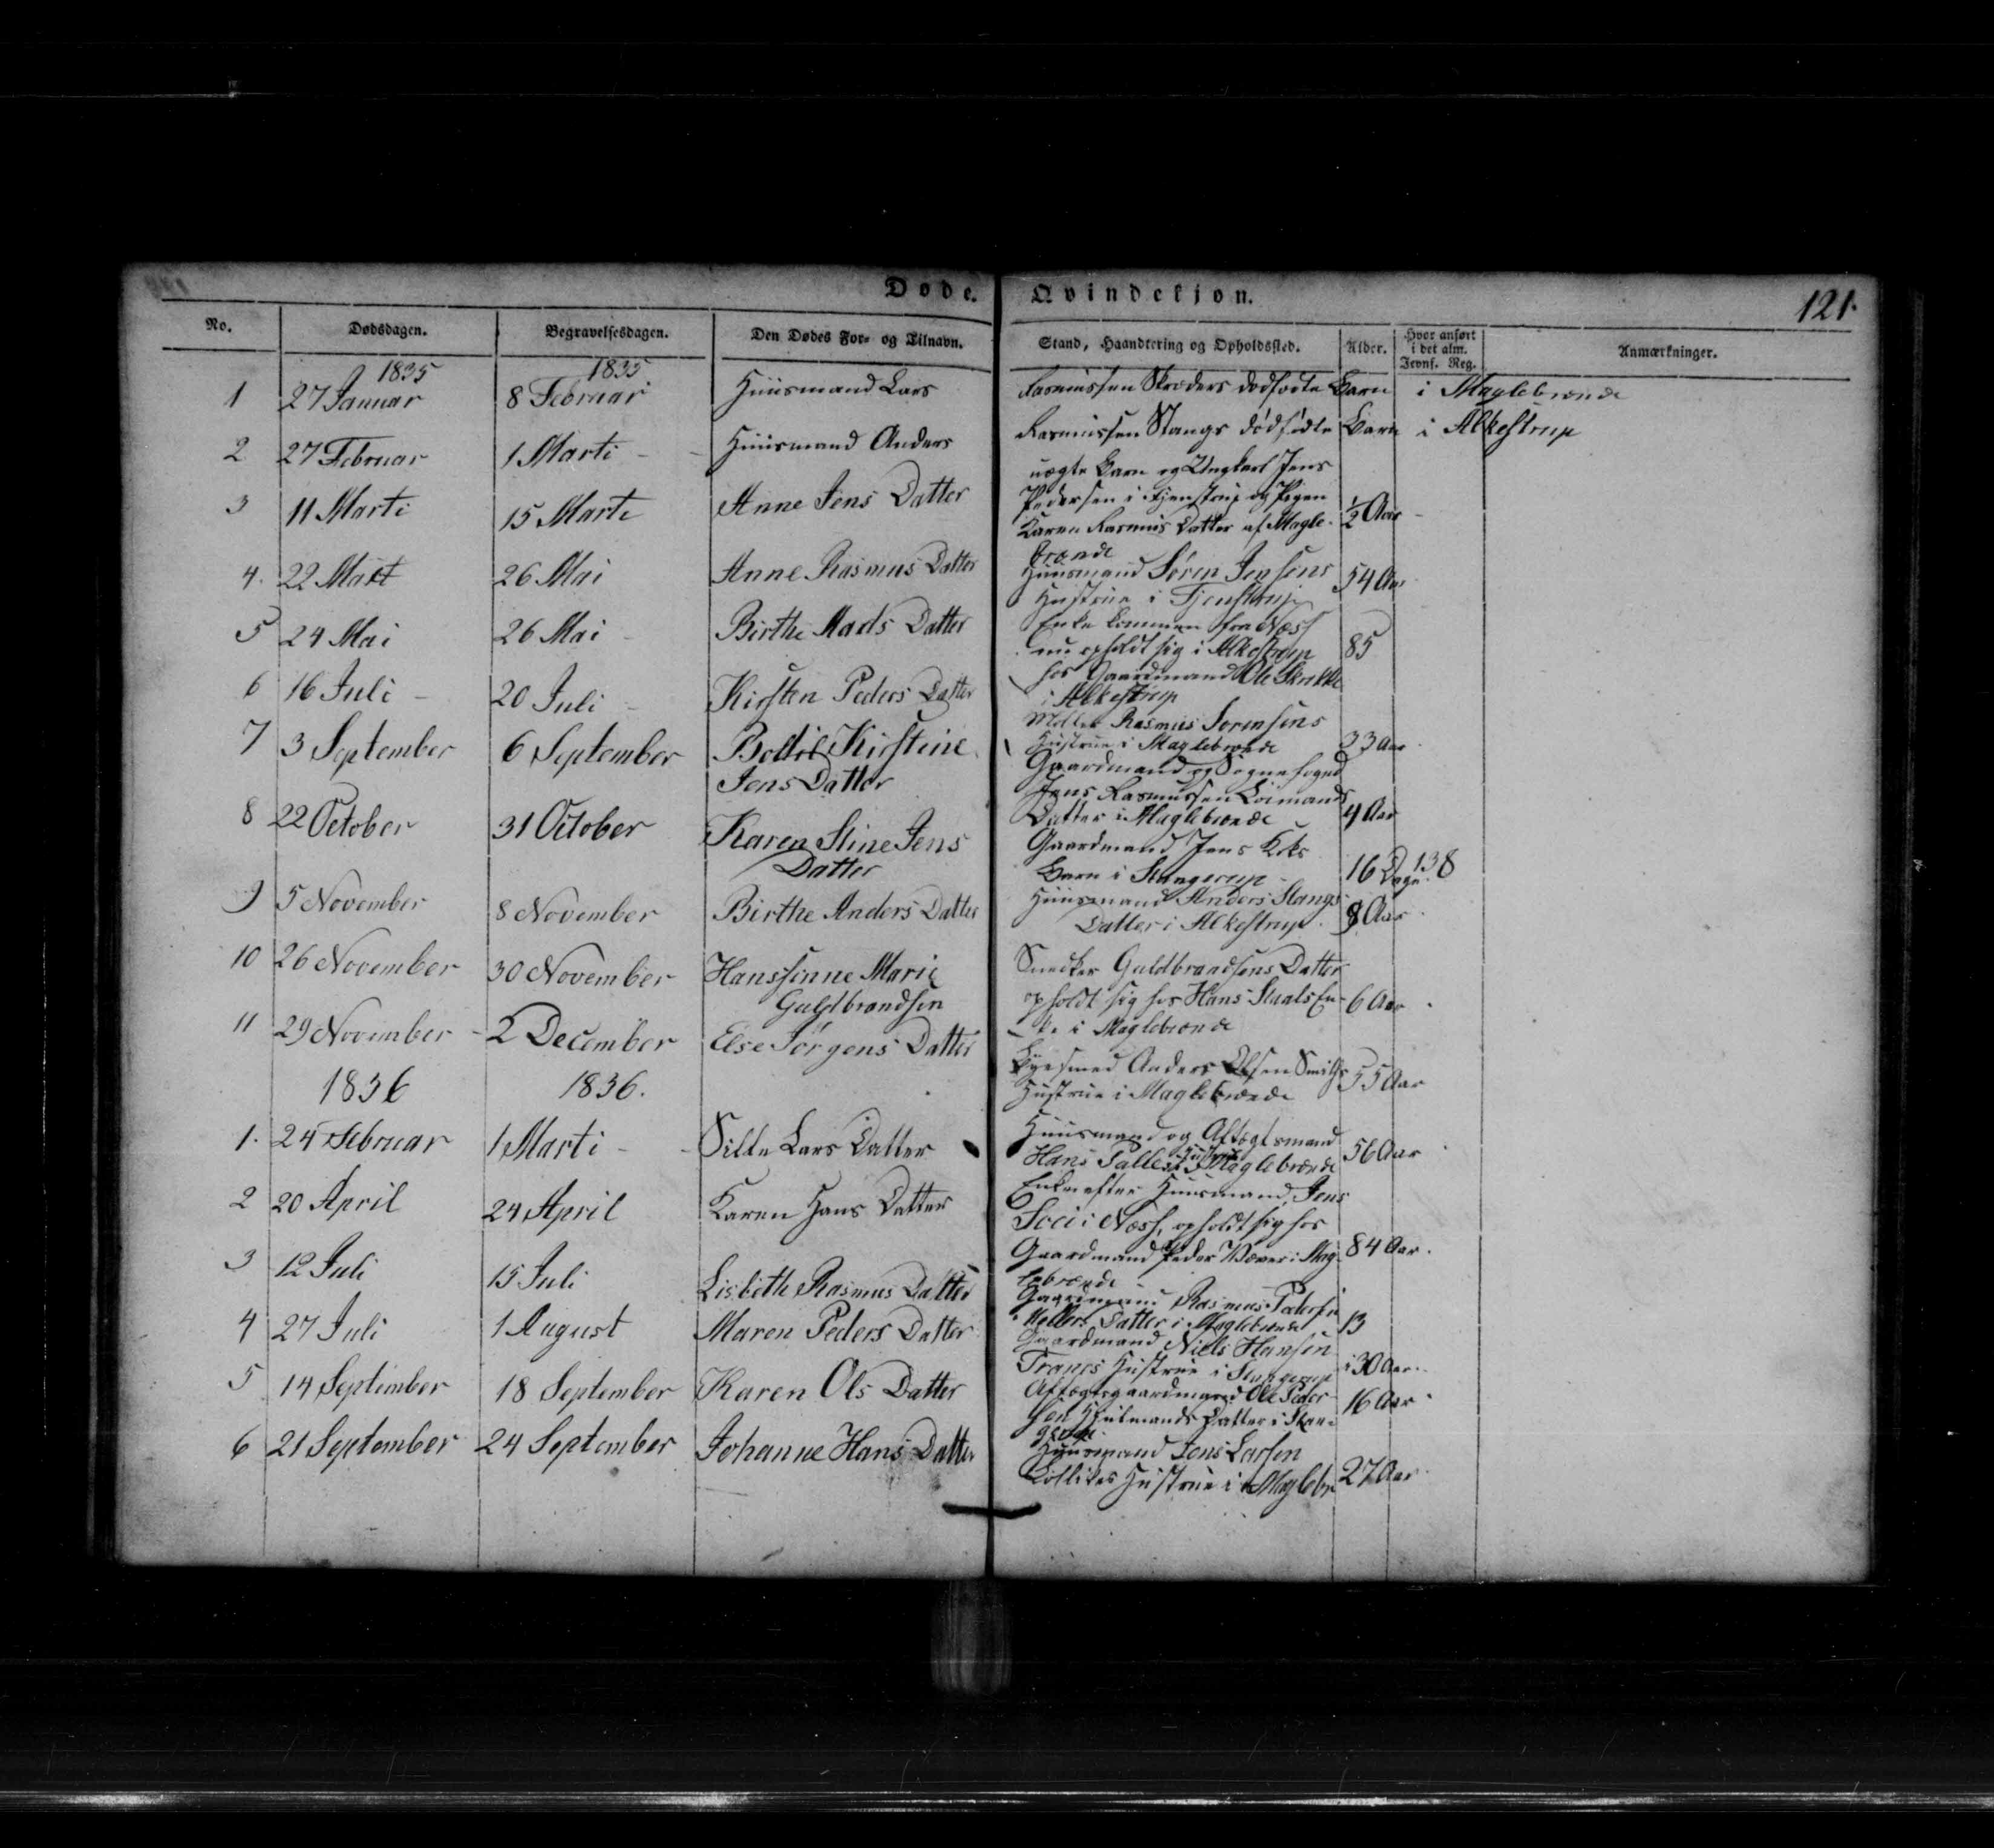 Døde. Qvindekjøn.
121.
No. Dødsdagen. Begravelsesdagen. Den Dødes For- og Tilnavn. Stand, Haandtering og Opholdssted. Alder. Hvor anført i det alm. Jevnf. Reg. Anmærkninger.
1835 1835
1 27 Januar 8 Februar Huusmand Lars Rasmussen Skræders dødfødte Barn i Maglebrænde
2 27 Februar 1 Marti - - Huusmand Anders Rasmussen Stangs dødfødte Barn i Alkestrup
3 11 Marti 15 Marti Anne Jens Datter
uægte Barn og Ungkarl Jens
Pedersen i Tjenstrup og Pigen
Karen Rasmus Datter af Magle- ½ Aar
brænde
4. 22 Mai 26 Mai Anne Rasmus Datter
Huusmand Søren Jensens 54 Aar
Hustrue i Tjenstrup
5 24 Mai 26 Mai - Birthe Mads Datter
Enke kommen fra Næss
nu opholdt sig i Alkestrup 85
6 16 Juli - 20 Juli - Kirsten Peders Datter
hos Gaardmand Ole
i Alkestrup
Møller Rasmus Sørensens
Hustrue i Maglebrænde 33 Aar
7 3 September 6 September Bodil Kirstine
Jens Datter
Gaardmand og Sognefoged
Jens Rasmussen
Datter i Maglebrænde 4 Aar
8 22 October 31 October Karen Stine Jens
Datter
Gaardmand Jens Koks
Barn i Stangerup 16 Dage 138
9 5 November 8 November Birthe Anders Datter
Huusmand Anders Stangs
Datter i Alkestrup 8 Aar
10 26 November 30 November Hanssinne Marie
Guldbrandsen
Snedker Guldbrandsens Datter
opholdt sig hos Hans En- 6 Aar
ke i Maglebrænde
11 29 November - 2 December Else Jørgens Datter
Byesmed Anders Olsen Smiths 55 Aar
Hustrue i Maglebrænde
1836 1836.
1. 24 Februar 1 Marti - - Sidse Lars Datter
Huusmand og Aftægtsmand
Hans Palles Hustrue i Maglebrænde 56 Aar
2 20 April 24 April Karen Hans Datter
Enke efter Huusmand Jens
i Næss, opholdt sig hos
Gaardmand Peder Wæver i Mag- 84 Aar.
lebrænde
3 12 Juli 15 Juli Lisbeth Rasmus Datter
Gaardmand Rasmus Pedersen
Møllers Datter i Maglebrænde 13
4 27 Juli 1 August Maren Peders Datter
Gaardmand Niels Hansen
Hustrue i Stangerup 30 Aar
5 14 September 18 September Karen Ols Datter
Aftægtsgaardmand Ole Peder-
sen Datter i Stan- 16 Aar
gerup
6 21 September 24 September Johanne Hans Datter
Huusmand Jens Larsen
Hustrue i Maglebr 27 Aar